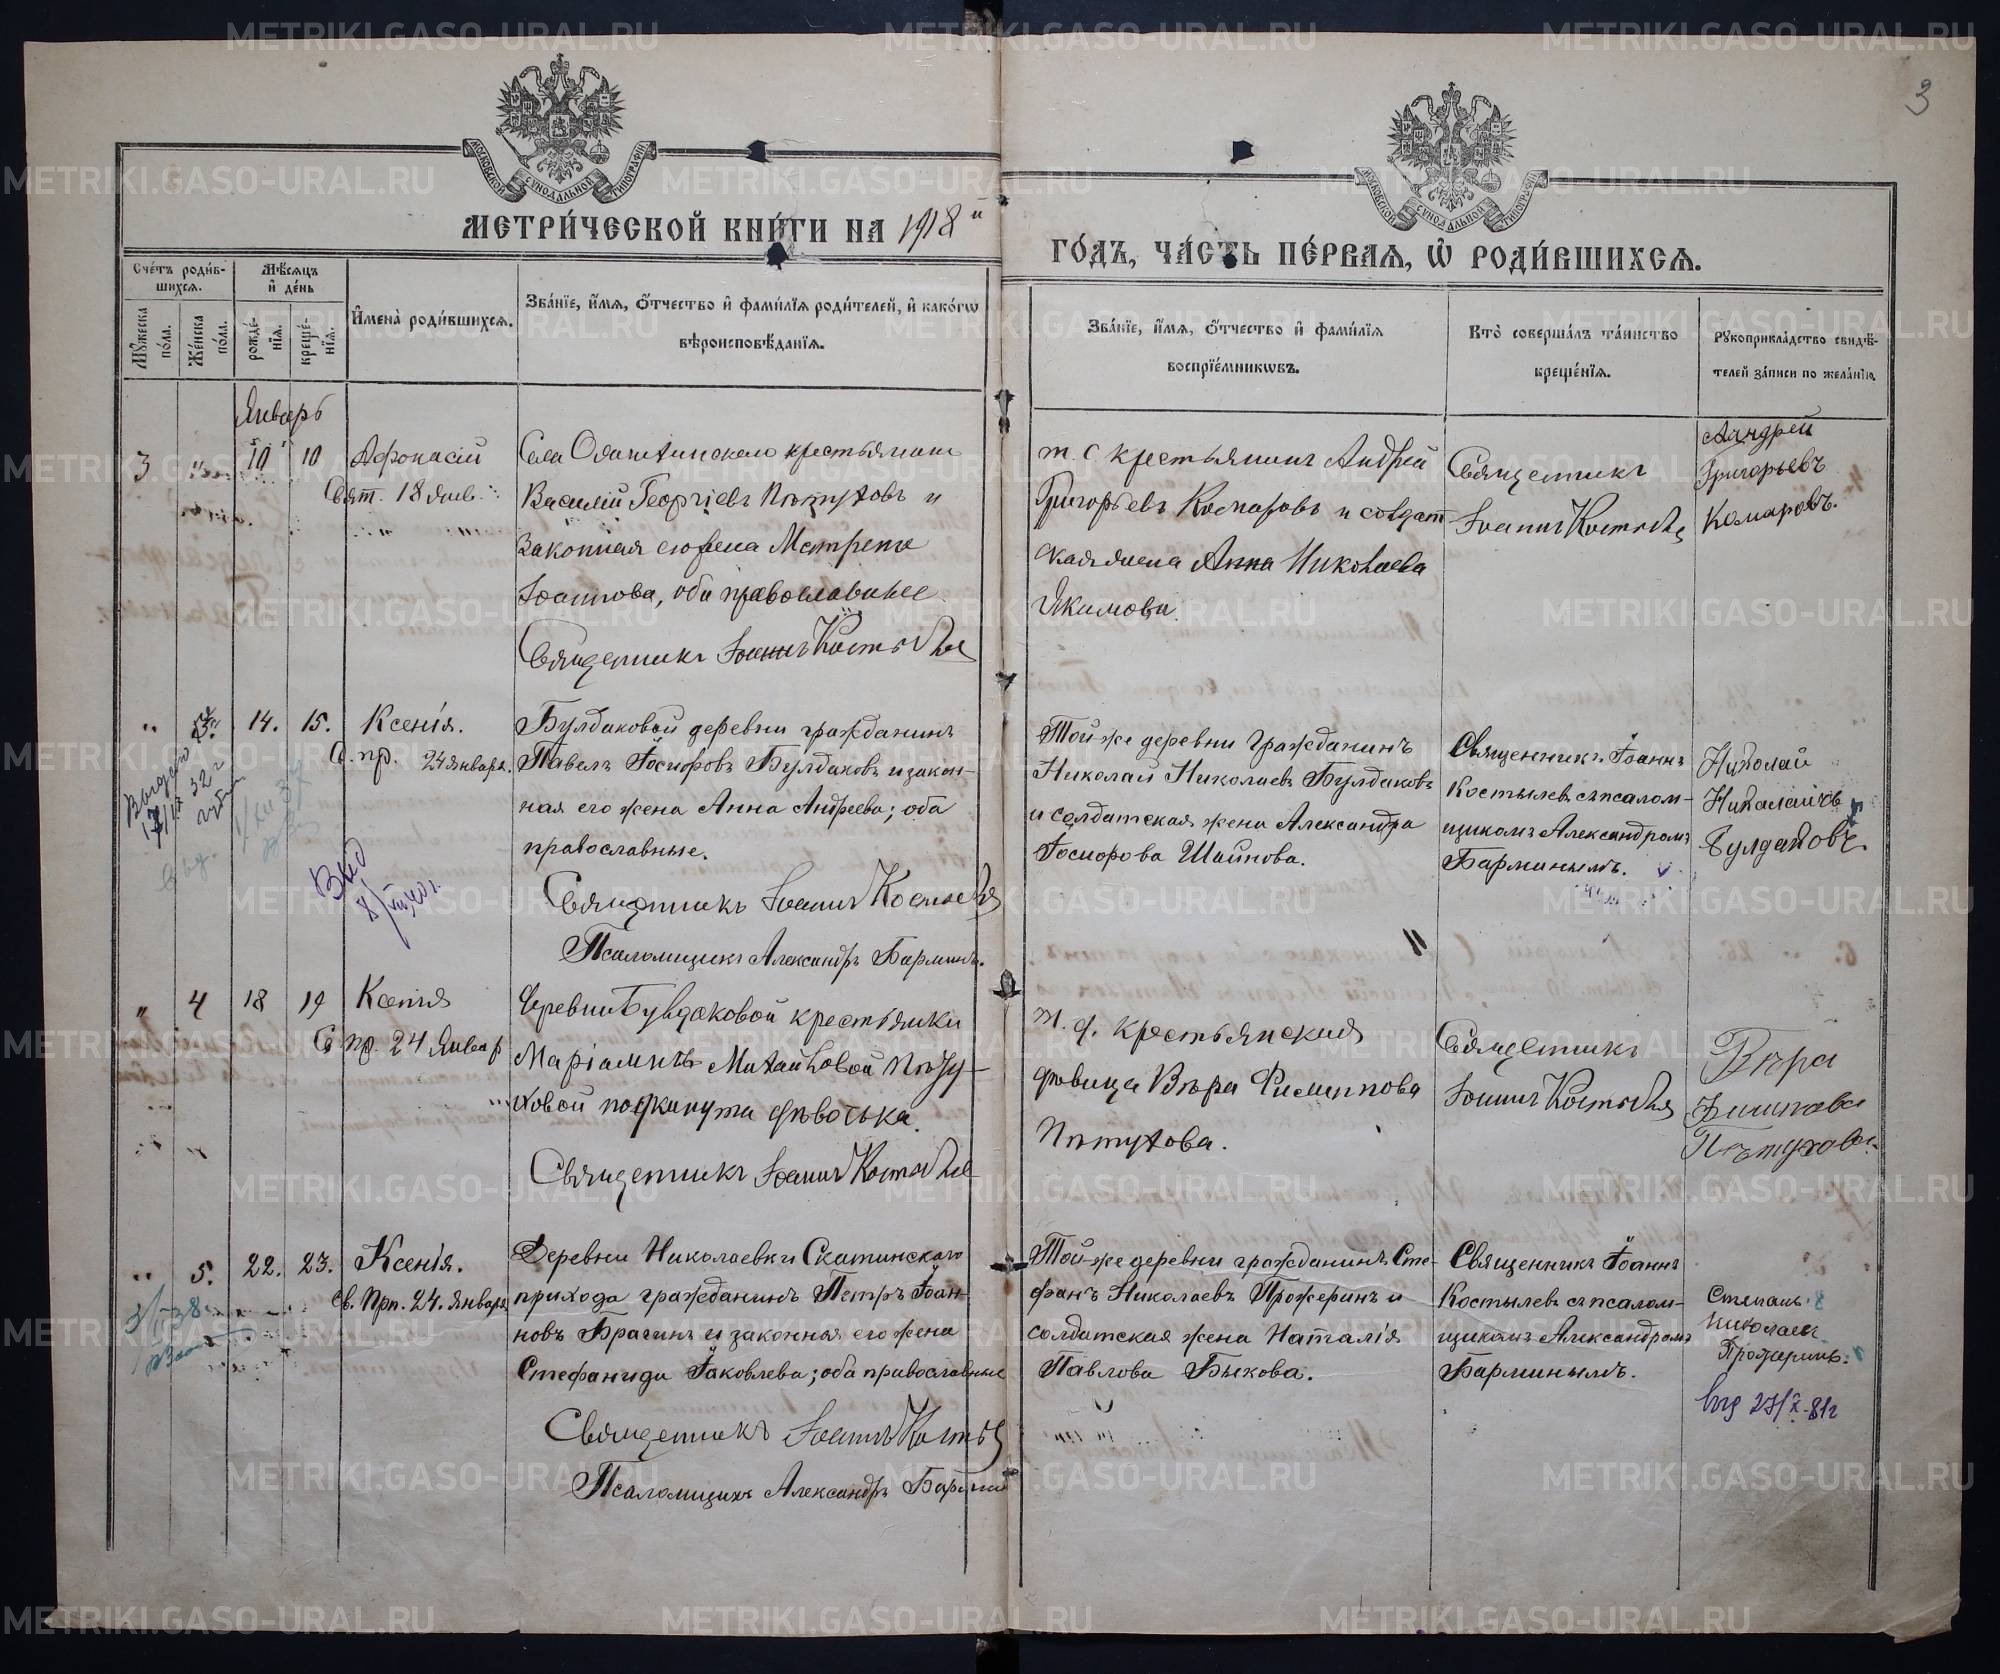 3
МОСКОВСКОЙ СѴНОДАЛЬНОЙ ТИПОГРАФІИ
МОСКОВСКОЙ СѴНОДАЛЬНОЙ ТИПОГРАФІИ
МЕТРИ́ЧЕСКОЙ КНИ́ГИ НА 1918 й
ГО́ДЪ, ЧА́СТЬ ПЕ́РВАЯ, Ѽ РОДИ́ВШИХСЯ.
Сче́тъ роди́в-
шихся.
Мѣ́сяцъ
и де́нь
Мꙋ́жеска по́ла.
Же́нска по́ла.
рожде́-
нїя.
креще́-
нїя.
И҆мена̀ роди́вшихся.
Зва́нїе, и҆́мя, ѻ҆́тчество и҆ фами́лїя роди́телей, и҆ како́гѡ
вѣроисповѣ́данїя.
Зва́нїе, и҆́мя, ѻ҆́тчество и҆ фами́лїя
воспрїе́мникѡвъ.
Кто̀ соверша́лъ та́инство
креще́нїя.
Рꙋкоприкла́дство свидѣ́-
телей за́писи по жела́нїю.
Январь
3 " 10 10 Афонасій
Свят. 18 янв.
Василій Георгіевъ Пѣтуховъ и
законная его жена Матрена
Іоаннова, оба православные
Священникъ Іоаннъ Костылев
т. с крестьянинъ Андрей
Григорьевъ Комаровъ и солдат
ская жена Анна Николаева
Якимова.
Священникъ
Іоаннъ Костылев
Андрей
Григорьевъ
Комаровъ.
" 3. 14. 15. Ксенія.
С. пр. 24 января.
Булдаковой деревни гражданинъ
Павелъ Ѳосифовъ Булдаковъ и закон-
ная его жена Анна Андреева; оба
православные.
Священникъ Іоаннъ Костылев
Псаломщикъ Александръ Барминъ.
Той-же деревни гражданинъ
Николай Николаевъ Булдаковъ
и солдатская жена Александра
Шаинова.
Священникъ Іоаннъ
Костылевъ съ псалом-
щикомъ Александромъ
Барминымъ.
Николай
Булдаковъ
" 4 18 19 Ксенія
С. пр. 24 Январ
Деревни Булдаковой крестьянки
Маріамнѣ Михайловой Пѣту-
ховой подкинута дѣвочка.
Священникъ Іоаннъ Костылев
т. д. крестьянская
дѣвица Вѣра Филиппова
Пѣтухова.
Священникъ
Іоаннъ Костылев
Вѣра
Пѣтухова.
" 5. 22. 23. Ксенія.
Св. Прп. 24. января
Деревни Николаевки Скатинскаго
прихода гражданинъ Петръ Іоан-
новъ Брагинъ и законная его жена
Стефанида Іаковлева; оба православные
Священникъ Іоаннъ Костыл
Псаломщикъ Александръ Бармин
Той-же деревни гражданинъ Сте-
фанъ Николаевъ Прожеринъ и
солдатская жена Наталія
Павлова Быкова.
Священникъ Іоаннъ
Костылевъ съ псалом-
щикомъ Александромъ
Барминымъ.
Степанъ
Николаевъ
Прожеринъ.